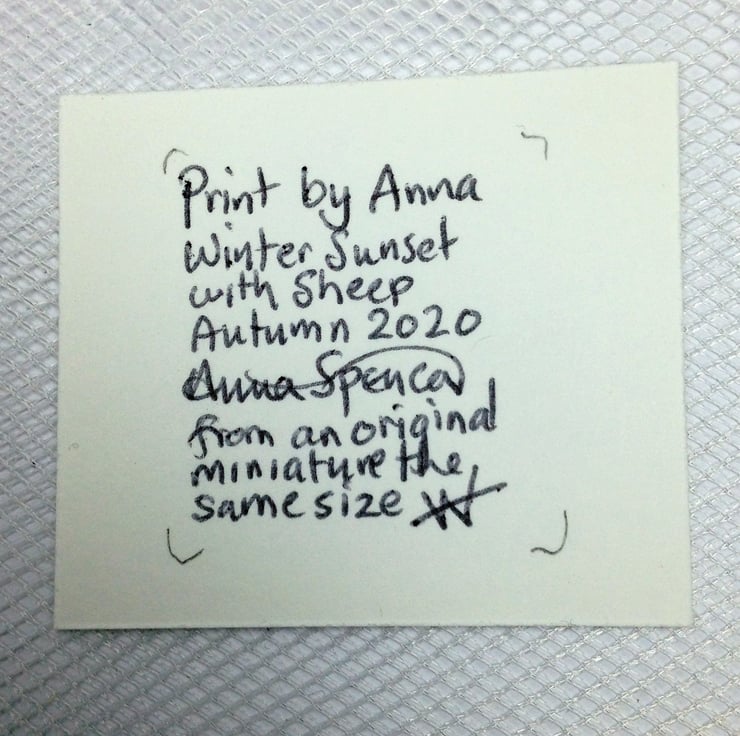 Print by Anna
Winter Sunset
with Sheep
Autumn 2020
Anna Spencer
from an original
miniature the
same size